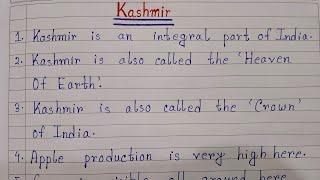 Kashmir
1. Kashmir is an integral part of India.
2. Kashmir is also called the 'Heaven
Of Earth'.
3. Kashmir is also called the 'Crown'
of India.
4. Apple production is very high here.
all around here